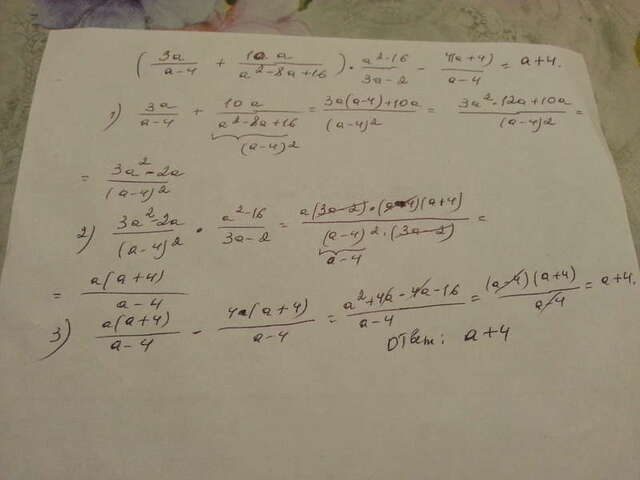 ( 3a/a-4 + 10a/a²-8a+16 ) · a²-16/3a-2 - 4(a+4)/a-4 = a+4.
1) 3a/a-4 + 10a/a²-8a+16 = 3a(a-4)+10a/(a-4)² = 3a²-12a+10a/(a-4)² =
(a-4)²
= 3a²-2a/(a-4)²
2) 3a²-2a/(a-4)² · a²-16/3a-2 = a(3a-2)·(a-4)(a+4)/(a-4)²·(3a-2) =
a-4
= a(a+4)/a-4
3) a(a+4)/a-4 - 4(a+4)/a-4 = a²+4a-4a-16/a-4 = (a-4)(a+4)/a-4 = a+4.
Ответ: a+4